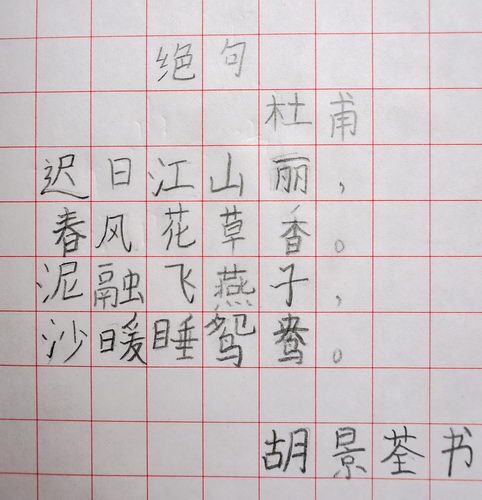 绝句
杜甫
迟日江山丽，
春风花草香。
泥融飞燕子，
沙暖睡鸳鸯。
胡景荃书